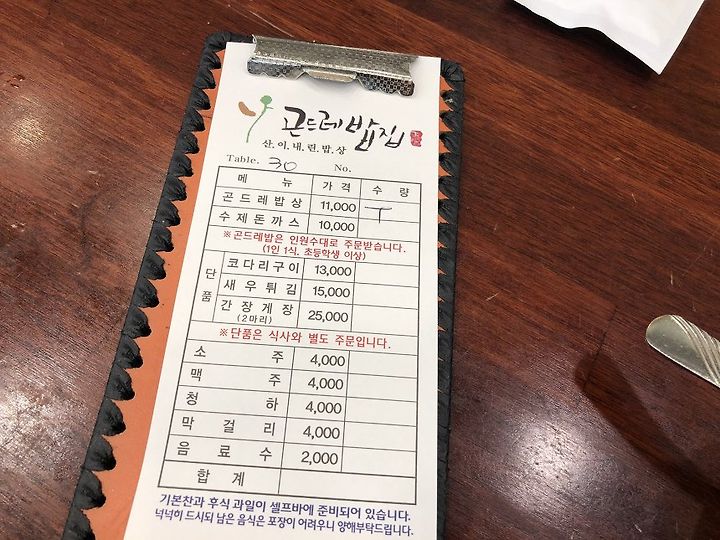 곤드레밥집
산.이.내.린.밥.상
Table. 30 No.
메 뉴 가 격 수 량
곤드레밥상 11,000 T
수제돈까스 10,000
※곤드레밥은 인원수대로 주문받습니다.
(1인 1식. 초등학생 이상)
단품
코다리구이 13,000
새우튀김 15,000
간장게장 25,000
(2마리)
※단품은 식사와 별도 주문입니다.
소 주 4,000
맥 주 4,000
청 하 4,000
막 걸 리 4,000
음 료 수 2,000
합 계
기본찬과 후식 과일이 셀프바에 준비되어 있습니다.
넉넉히 드시되 남은 음식은 포장이 어려우니 양해부탁드립니다.